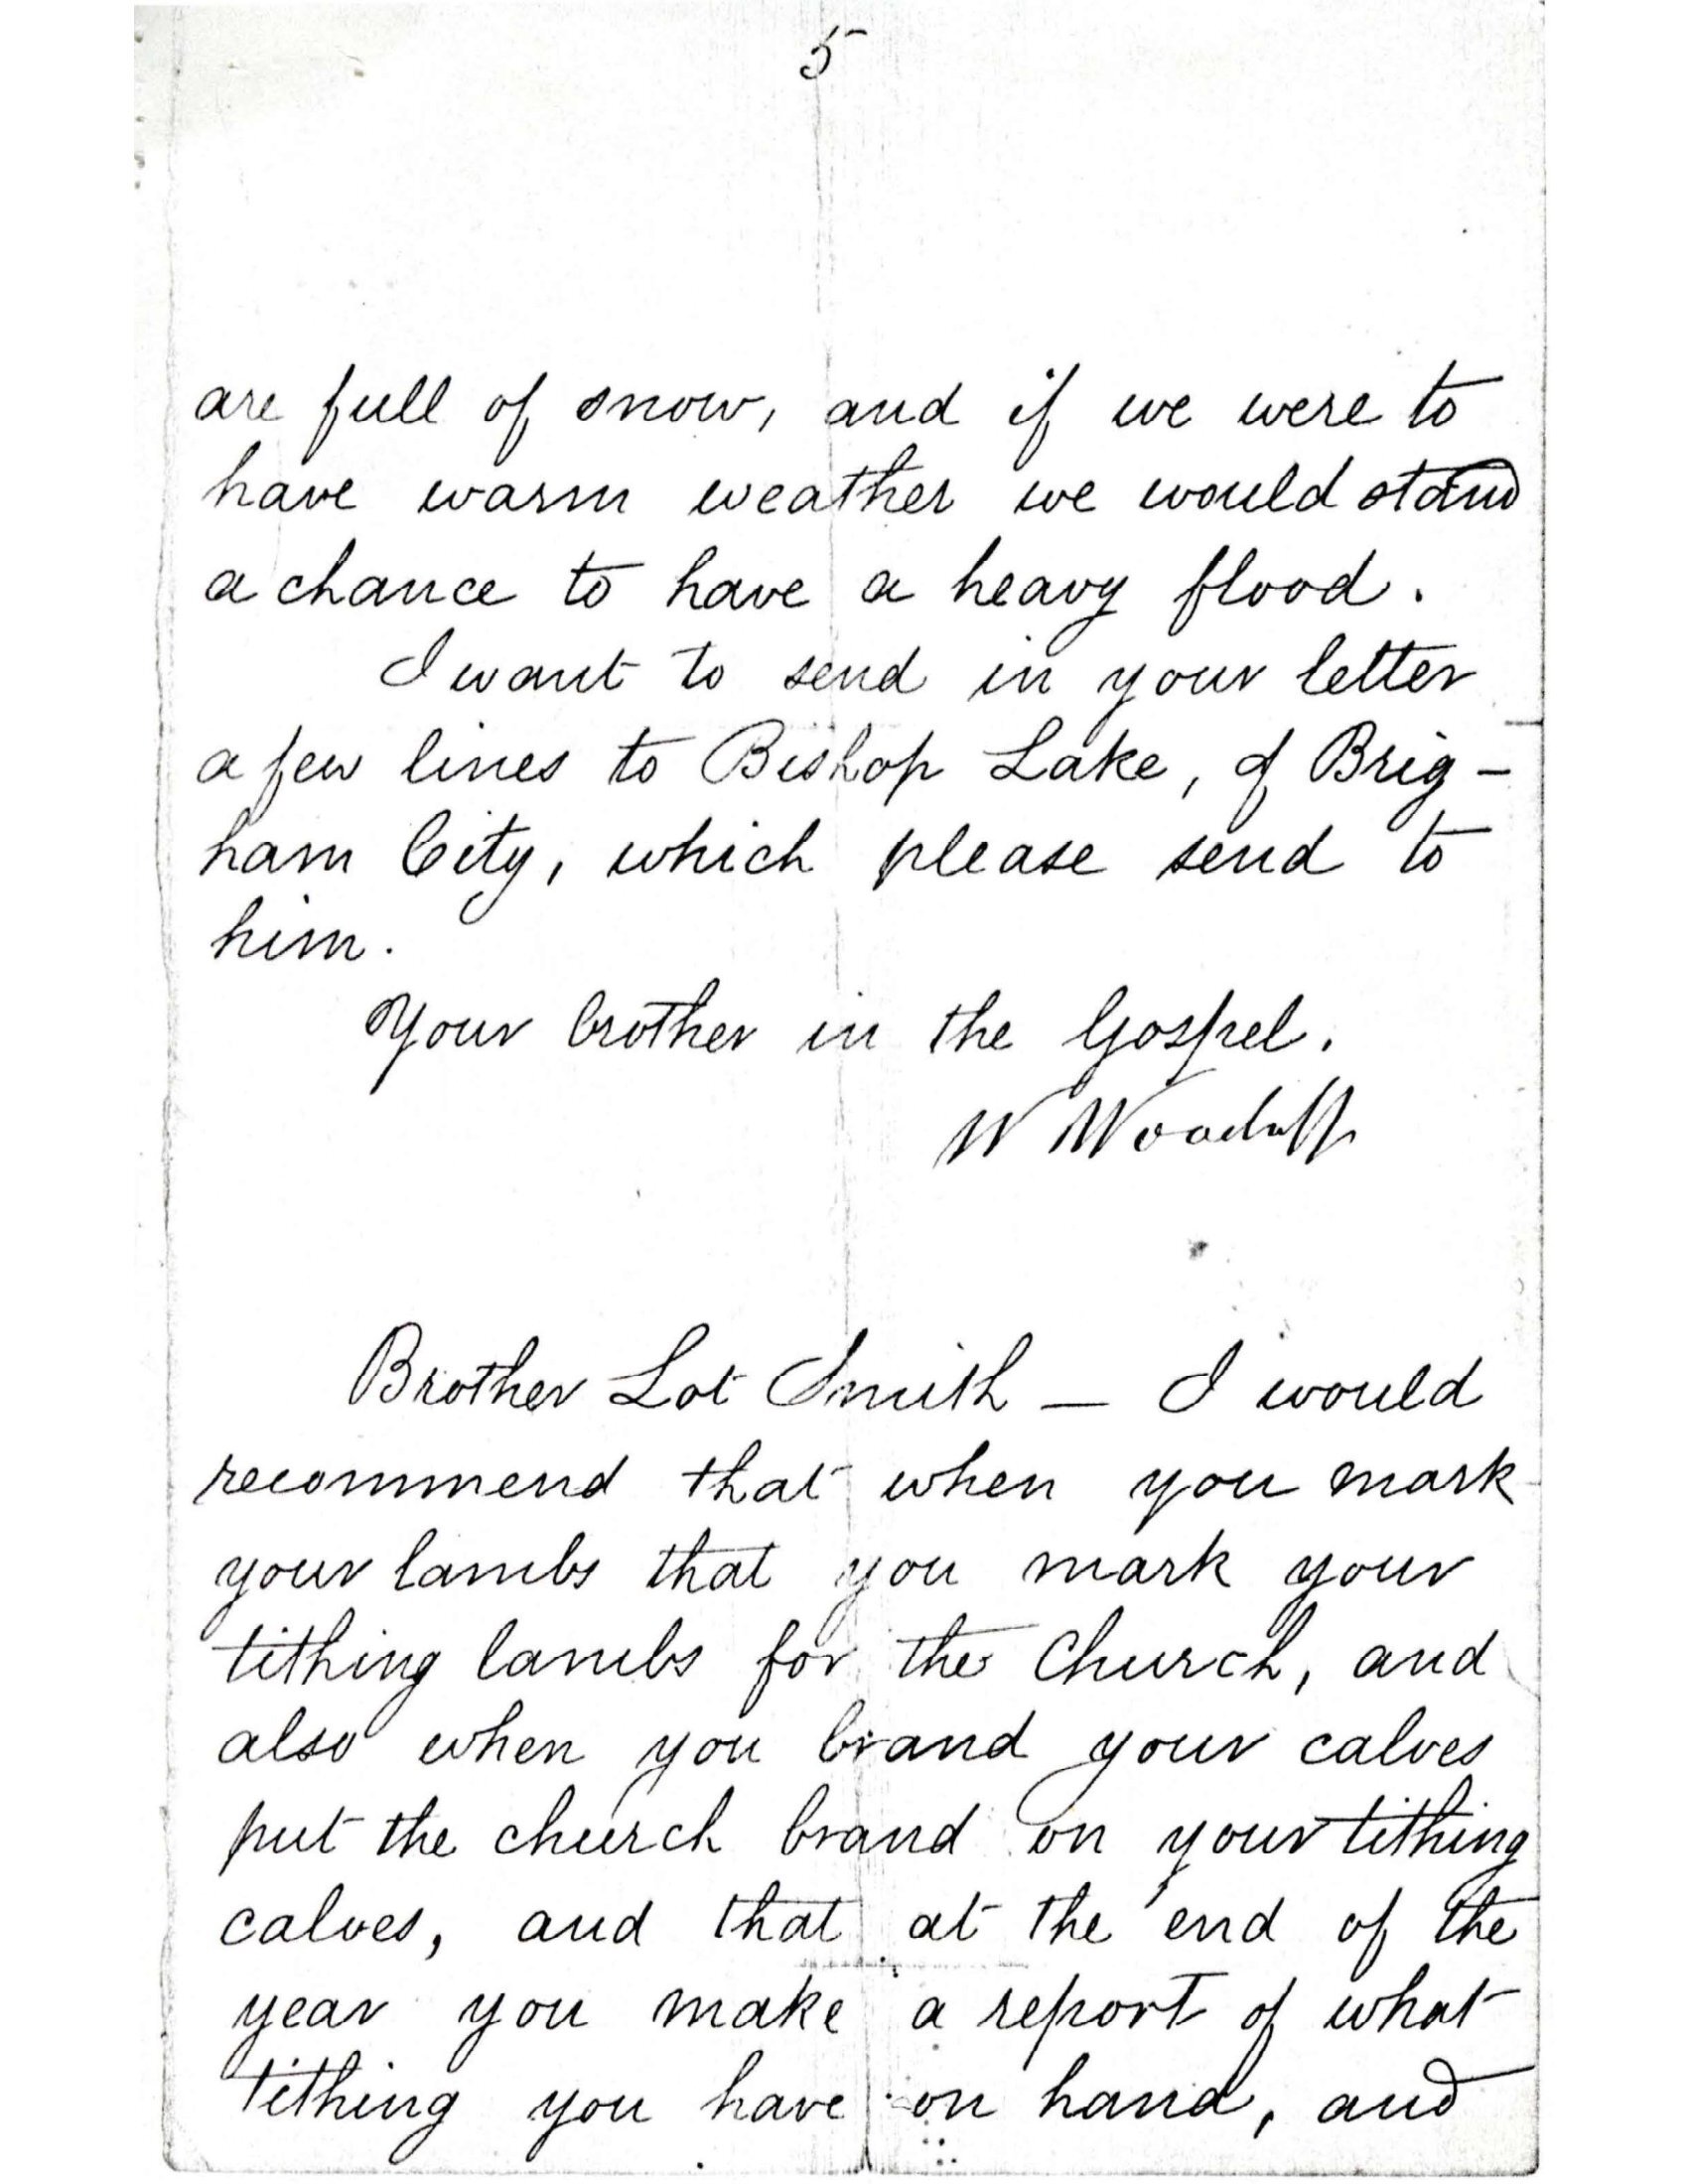 5
are full of snow, and if we were to
have warm weather we would stand
a chance to have a heavy flood.
I want to send in your letter
a few lines to Bishop Lake, of Brig-
ham City, which please send to
him.
Your brother in the Gospel.
W Woodruff
Brother Lot Smith — I would
recommend that when you mark
your lambs that you mark your
tithing lambs for the Church, and
also when you brand your calves
put the church brand on your tithing
calves, and that at the end of the
year you make a report of what
tithing you have on hand, and